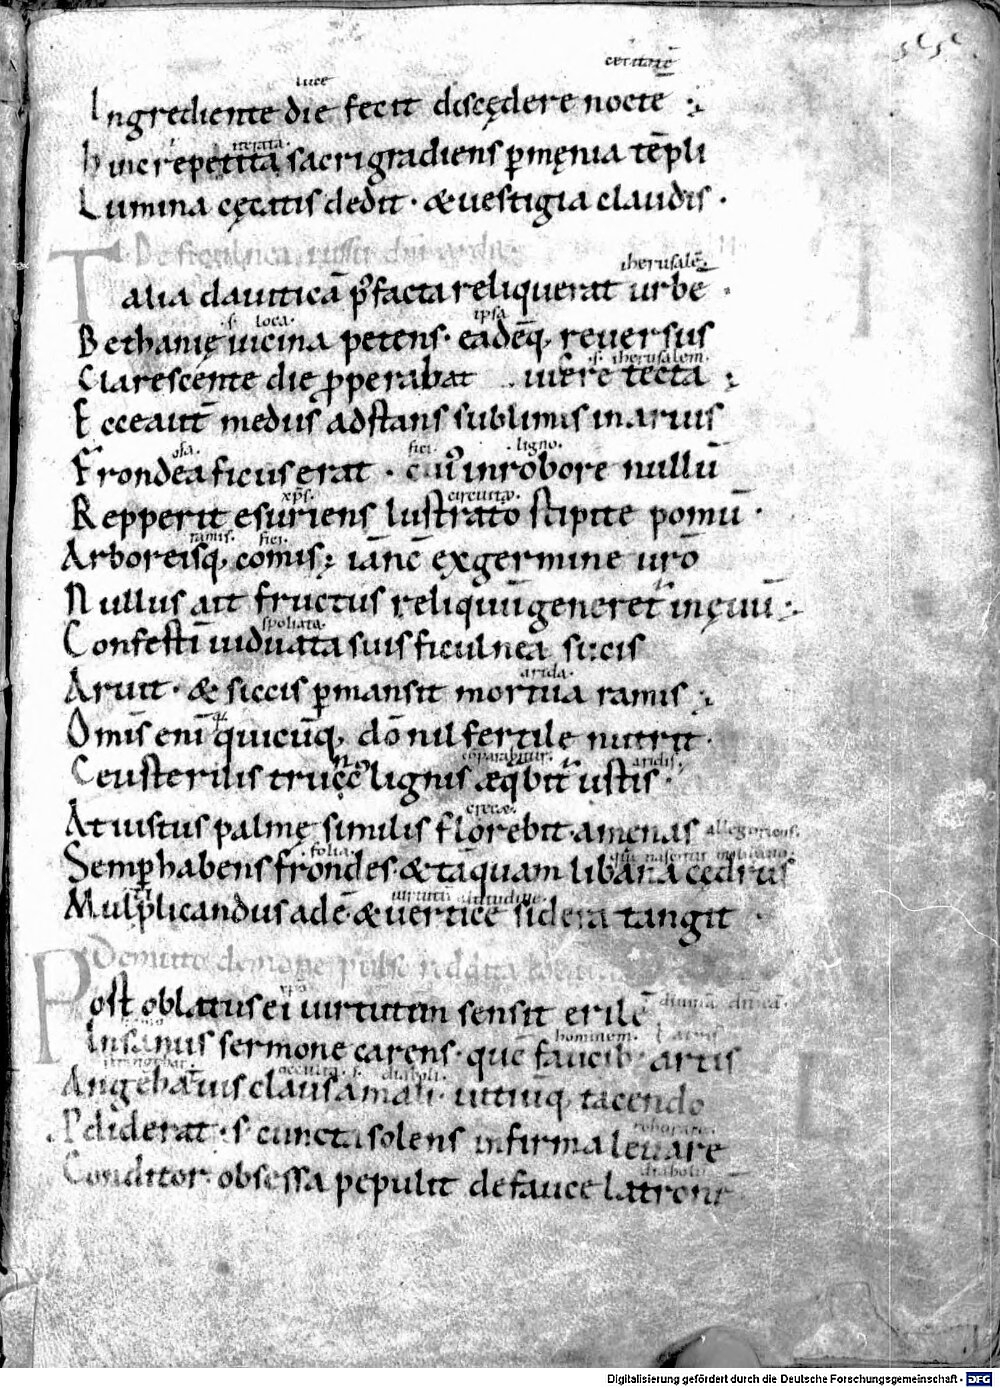 luce cecitatē
Ingrediente die fecit discędere noctē ;
iterata
hinc repetita sacri gradiens p męnia tēpli
Lumina cęcatis dedit · & uestigia claudis ·
De ficulnea iussu dn̄i
iherusalē
Talia dauiticā p facta reliquerat urbē ·
s· loca· ipsa
Bethanię uicina petens · eadēq, reuersus
s· iherusalem·
Clarescente die pperabat uisere tecta ;
Ecce aut̄ medus adstans sublimis in aruis
fici· ligno·
Frondea ficus erat · cui in robore nullū
xp̄s· circuitu·
Repperit esuriens lustrato stipite pomū ·
ramis· fici·
Arboreisq, comis ; iā nc̄ ex germine ur̄o
Nullus ait fructus reliquū generet in ęuū ;
spoliata·
Confestī uiduata suis ficulnea sucis
arida·
Aruit · & siccis pmansit mortua ramis ;
Om̄is enī quicūq, dō nil fertile nutrit ·
cōparabitur· aridis·
Ceu sterilis truncꝰ lignis æqbit ustis ·
At iustus palmę similis florebit amenas
folia·
Semp habens frondes · & tāquam libana cędrus
uirtutū altitudine·
Multiplicandus adē · & uertice sidera tangit ·
De muto demone pulso reddita
xp̄o diuinā
Post oblatus ei uirtutem sensit erilē
hominem·
Insanus sermone carens · que faucib artis
stringebat· occulta· s· diaboli·
Angebat uis clausa mali · uitiūq, tacendo
roborare·
Pdiderat · s; cuncta solens infirma leuare
diaboli
Conditor · obsessa pepulit de fauce latronē
Digitalisierung gefördert durch die Deutsche Forschungsgemeinschaft · DFG